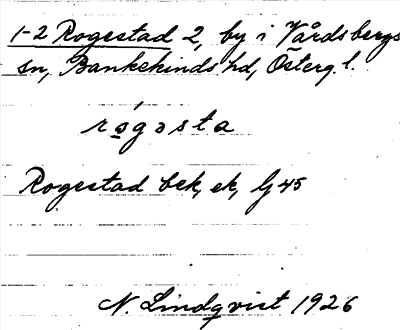 1-2 Rogestad 2, by i Vårdsbergs
sn, Bankekinds hd, Österg. l.
rǫ́gəsta
Rogestad bek, ek, G 45
N. Lindqvist 1926